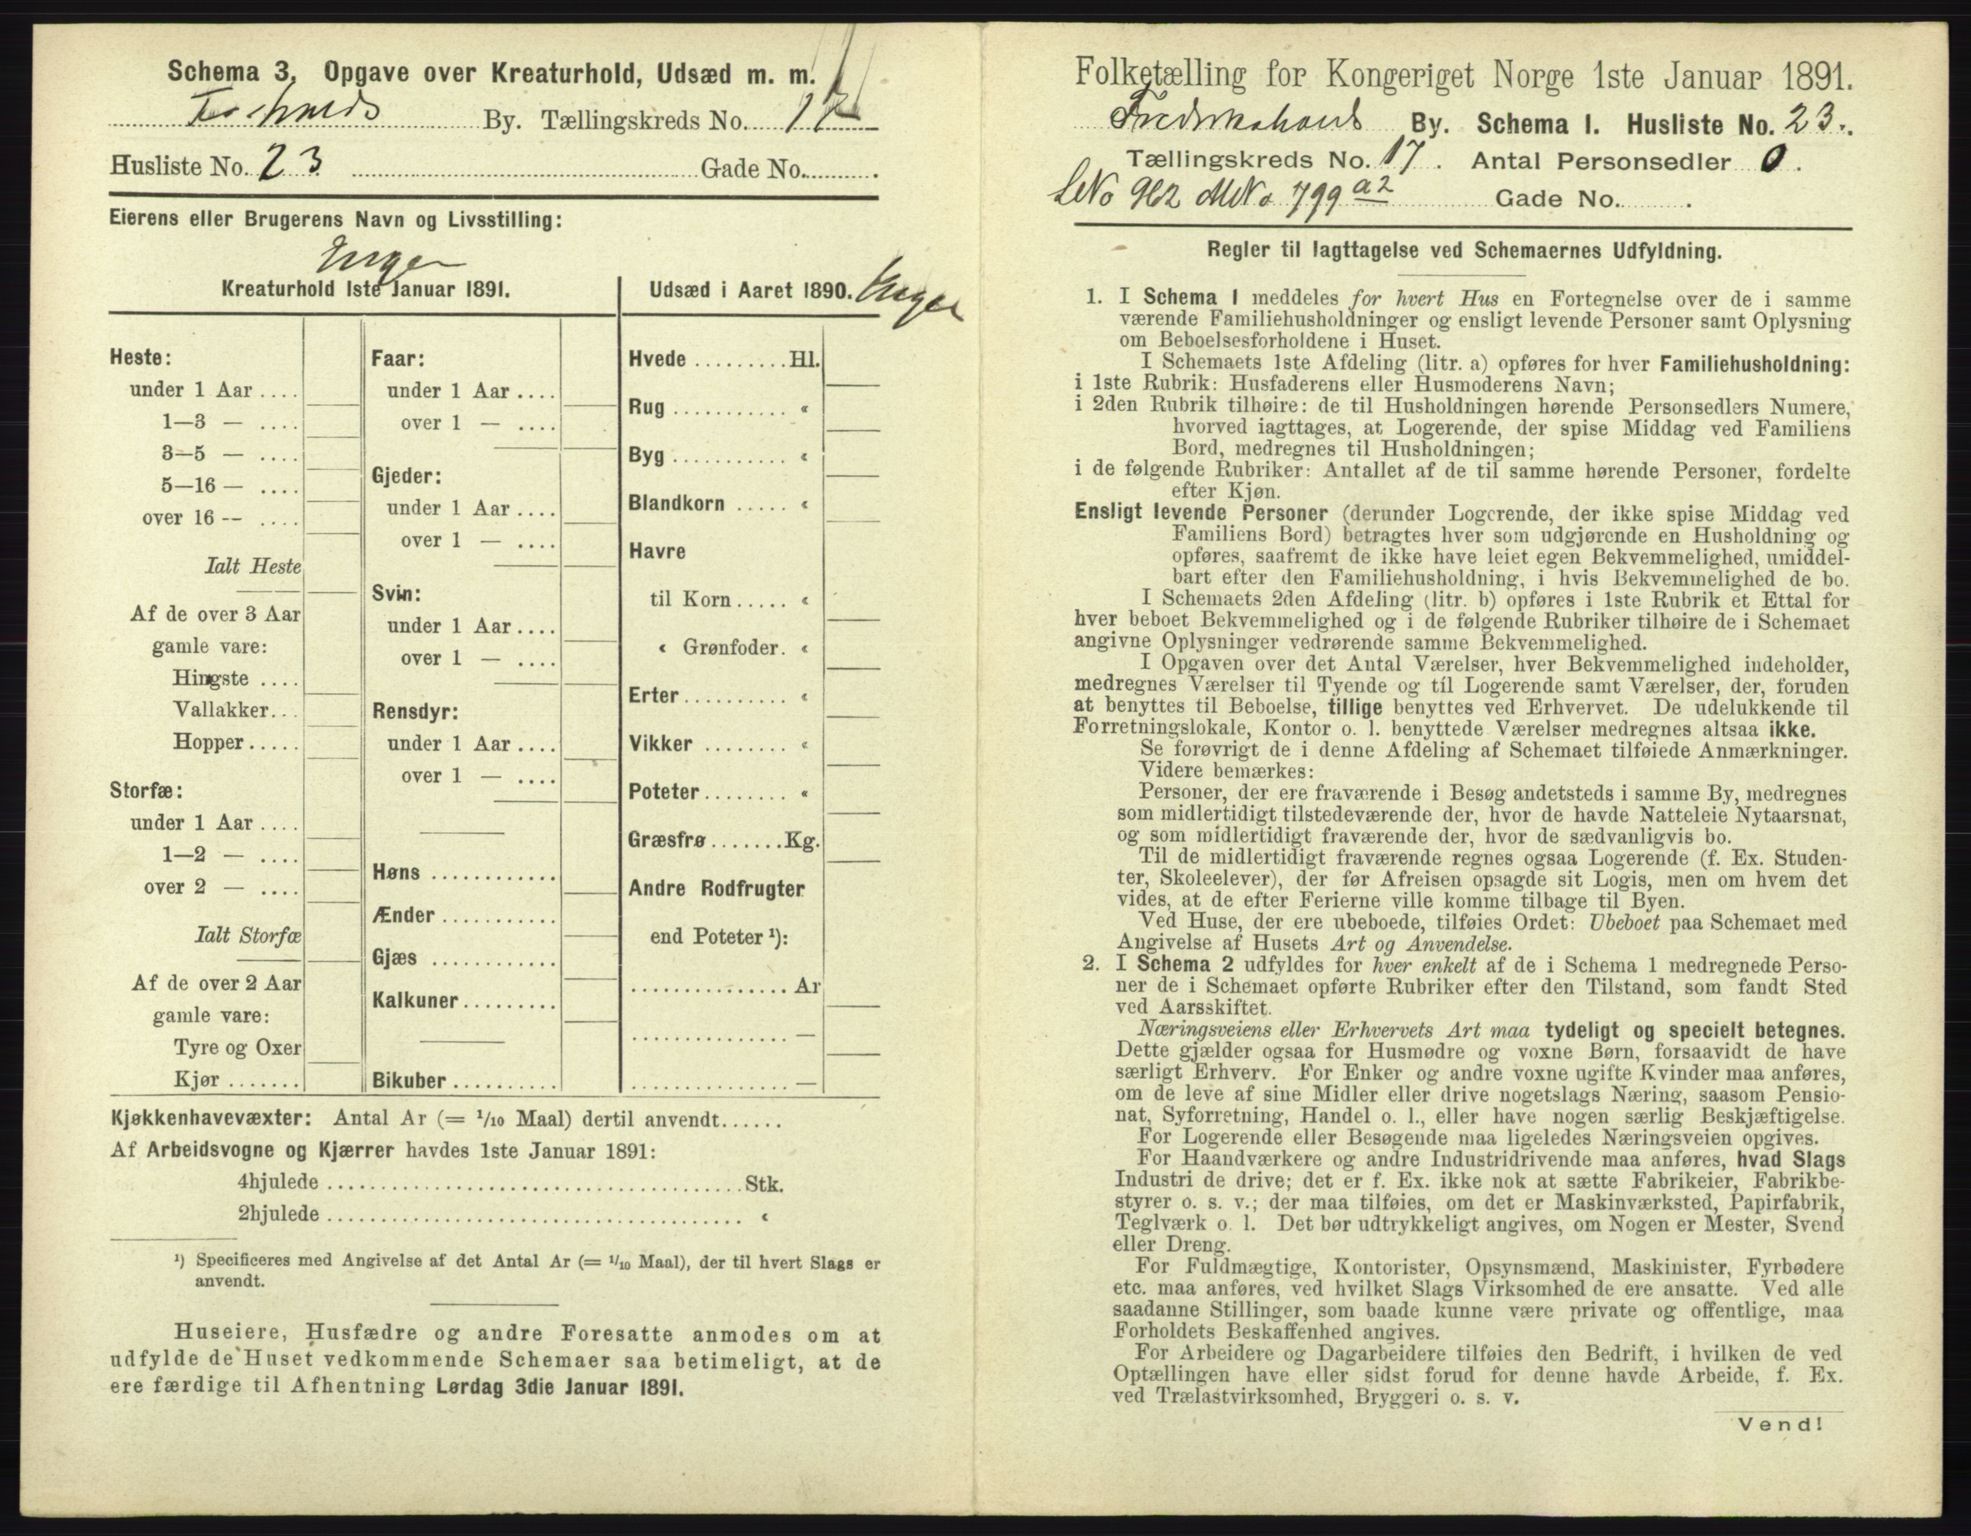 Schema 3, Opgave over Kreaturhold, Udsæd m. m.
Fr.halds By. Tællingskreds No. 17
Husliste No. 23 Gade No.
Eierens eller Brugerens Navn og Livsstilling:
Inger
Kreaturhold 1ste Januar 1891.
Heste:
under 1 Aar
1—3 —
3—5 —
5—16 —
over 16 —
Ialt Heste
Af de over 3 Aar
gamle vare:
Hingste
Vallakker
Hopper
Storfæ:
under 1 Aar
1—2 —
over 2 —
Ialt Storfæ
Af de over 2 Aar
gamle vare:
Tyre og Oxer
Kjør
Faar:
under 1 Aar
over 1 —
Gjeder:
under 1 Aar
over 1 —
Svin:
under 1 Aar
over 1 —
Rensdyr:
under 1 Aar
over 1 —
Høns
Ænder
Gjæs
Kalkuner
Bikuber
Udsæd i Aaret 1890. Ingen
Hvede Hl.
Rug "
Byg "
Blandkorn "
Havre
til Korn "
" Grønfoder "
Erter "
Vikker "
Poteter "
Græsfrø Kg.
Andre Rodfrugter
end Poteter ¹):
Ar
—
—
Kjøkkenhavevæxter: Antal Ar (= 1/10 Maal) dertil anvendt
Af Arbeidsvogne og Kjærrer havdes 1ste Januar 1891:
4hjulede Stk.
2hjulede "
¹) Specificeres med Angivelse af det Antal Ar (= 1/10 Maal), der til hvert Slags er
anvendt.
Huseiere, Husfædre og andre Foresatte anmodes om at
udfylde de Huset vedkommende Schemaer saa betimeligt, at de
ere færdige til Afhentning Lørdag 3die Januar 1891.
Folketælling for Kongeriget Norge 1ste Januar 1891.
Fredrikshald By. Schema 1. Husliste No. 23.
Tællingskreds No. 17. Antal Personsedler 0.
LNo 962 MNo 799 a2 Gade No. .
Regler til Iagttagelse ved Schemaernes Udfyldning.
1. I Schema 1 meddeles for hvert Hus en Fortegnelse over de i samme
værende Familiehusholdninger og ensligt levende Personer samt Oplysning
om Beboelsesforholdene i Huset.
I Schemaets 1ste Afdeling (litr. a) opføres for hver Familiehusholdning:
i 1ste Rubrik: Husfaderens eller Husmoderens Navn;
i 2den Rubrik tilhøire: de til Husholdningen hørende Personsedlers Numere,
hvorved iagttages, at Logerende, der spise Middag ved Familiens
Bord, medregnes til Husholdningen;
i de følgende Rubriker: Antallet af de til samme hørende Personer, fordelte
efter Kjøn.
Ensligt levende Personer (derunder Logerende, der ikke spise Middag ved
Familiens Bord) betragtes hver som udgjørende en Husholdning og
opføres, saafremt de ikke have leiet egen Bekvemmelighed, umiddel-
bart efter den Familiehusholdning, i hvis Bekvemmelighed de bo.
I Schemaets 2den Afdeling (litr. b) opføres i 1ste Rubrik et Ettal for
hver beboet Bekvemmelighed og i de følgende Rubriker tilhøire de i Schemaet
angivne Oplysninger vedrørende samme Bekvemmelighed.
I Opgaven over det Antal Værelser, hver Bekvemmelighed indeholder,
medregnes Værelser til Tyende og til Logerende samt Værelser, der, foruden
at benyttes til Beboelse, tillige benyttes ved Erhvervet. De udelukkende til
Forretningslokale, Kontor o. l. benyttede Værelser medregnes altsaa ikke.
Se forøvrigt de i denne Afdeling af Schemaet tilføiede Anmærkninger.
Videre bemærkes:
Personer, der ere fraværende i Besøg andetsteds i samme By, medregnes
som midlertidigt tilstedeværende der, hvor de havde Natteleie Nytaarsnat,
og som midlertidigt fraværende der, hvor de sædvanligvis bo.
Til de midlertidigt fraværende regnes ogsaa Logerende (f. Ex. Studen-
ter, Skoleelever), der før Afreisen opsagde sit Logis, men om hvem det
vides, at de efter Ferierne ville komme tilbage til Byen.
Ved Huse, der ere ubeboede, tilføies Ordet: Ubeboet paa Schemaet med
Angivelse af Husets Art og Anvendelse.
2. I Schema 2 udfyldes for hver enkelt af de i Schema 1 medregnede Perso-
ner de i Schemaet opførte Rubriker efter den Tilstand, som fandt Sted
ved Aarsskiftet.
Næringsveiens eller Erhvervets Art maa tydeligt og specielt betegnes.
Dette gjælder ogsaa for Husmødre og voxne Børn, forsaavidt de have
særligt Erhverv. For Enker og andre voxne ugifte Kvinder maa anføres,
om de leve af sine Midler eller drive nogetslags Næring, saasom Pensio-
nat, Syforretning, Handel o. l., eller have nogen særlig Beskjæftigelse.
For Logerende eller Besøgende maa ligeledes Næringsveien opgives.
For Haandværkere og andre Industridrivende maa anføres, hvad Slags
Industri de drive; det er f. Ex. ikke nok at sætte Fabrikeier, Fabrikbe-
styrer o. s. v.; der maa tilføies, om det er Maskinværksted, Papirfabrik,
Teglværk o. l. Det bør udtrykkeligt angives, om Nogen er Mester, Svend
eller Dreng.
For Fuldmægtige, Kontorister, Opsynsmænd, Maskinister, Fyrbødere
etc. maa anføres, ved hvilket Slags Virksomhed de ere ansatte. Ved alle
saadanne Stillinger, som baade kunne være private og offentlige, maa
Forholdets Beskaffenhed angives.
For Arbeidere og Dagarbeidere tilføies den Bedrift, i hvilken de ved
Optællingen have eller sidst forud for denne havde Arbeide, f. Ex.
ved Trælastvirksomhed, Bryggeri o. s. v.
Vend!